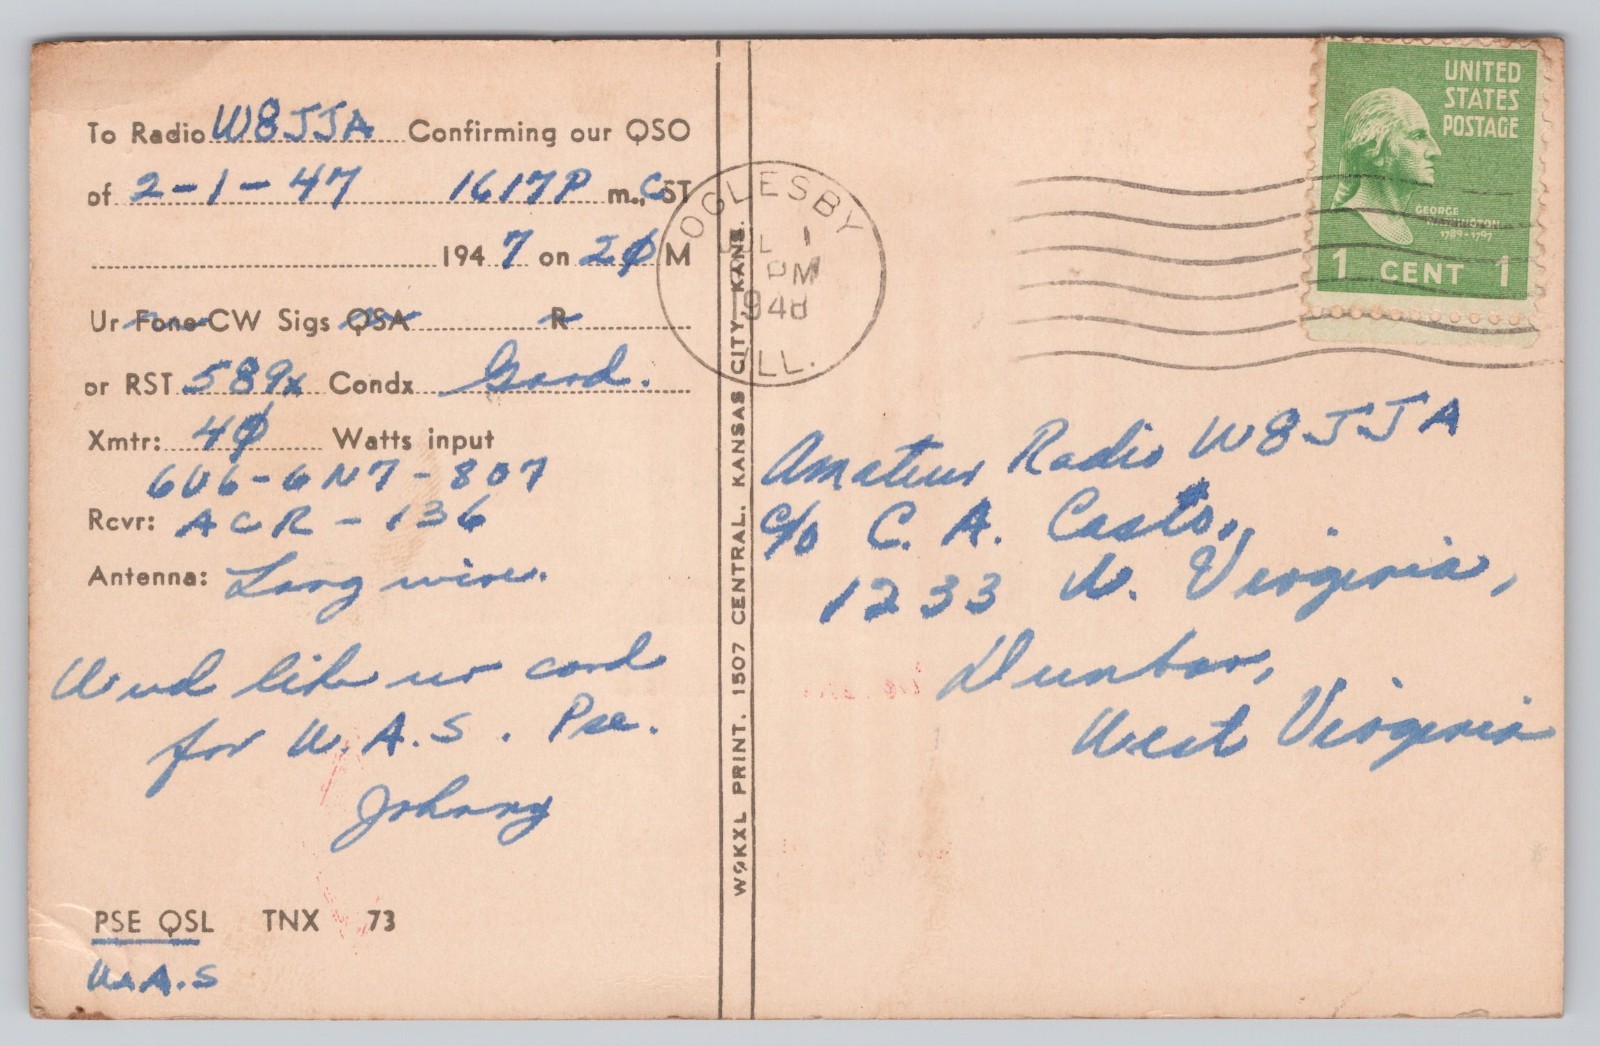 To Radio W8JJA Confirming our QSO
of 2-1-47 1617P m., CST
1947 on 2ØM
Ur Fone CW Sigs QSA R
or RST 589x Condx Good.
Xmtr: 4Ø Watts input
6U6-6N7-807
Rcvr: ACR-136
Antenna: Long wire.
Wud like ur card
for W.A.S. Pse.
Johnny
PSE QSL TNX 73
W.A.S
WØKXL PRINT. 1507 CENTRAL. KANSAS CITY, KANS.
OGLESBY
JUL 1
PM
1948
ILL.
UNITED
STATES
POSTAGE
GEORGE
WASHINGTON
1789-1797
1 CENT 1
Amateur Radio W8JJA
c/o C. A. Casto,
1233 W. Virginia,
Dunbar,
West Virginia